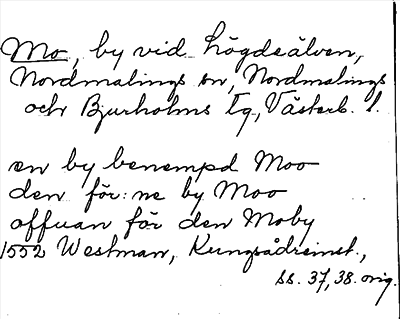 Mo, by vid Högdeälven,
Nordmalings sn, Nordmalings
och Bjurholms tg, Västerb. l.
en by benempd Moo
den för:ne by Moo
offuan för den Moby
1552 Westman, Kungsådreinst.,
ss. 37, 38. orig.